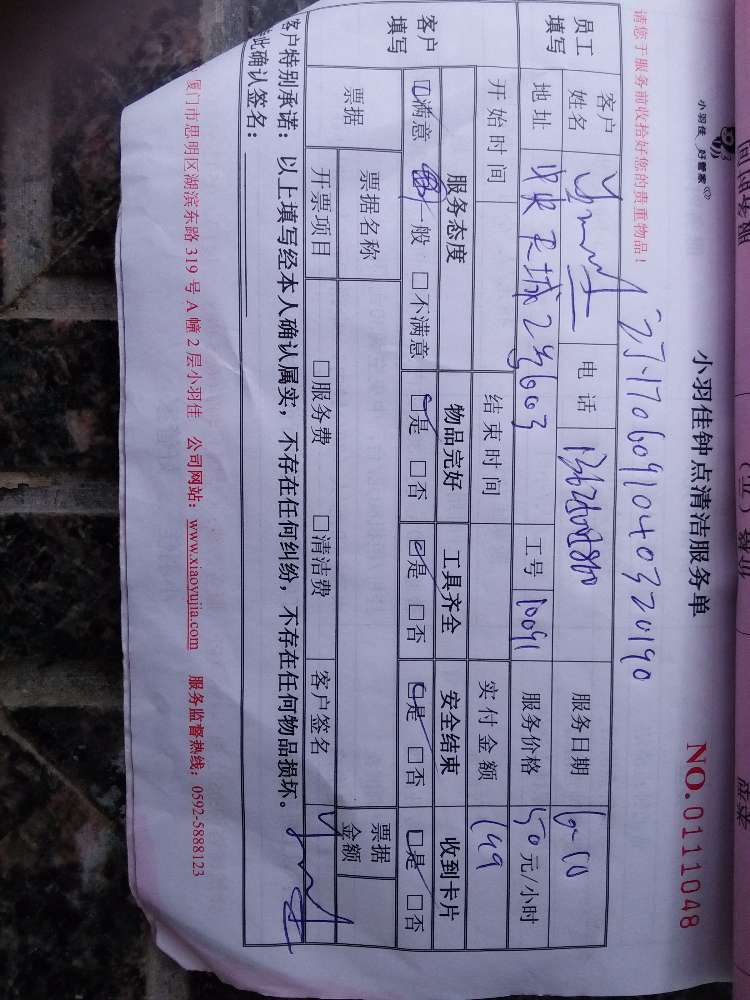 小羽佳 好管家
小羽佳钟点清洁服务单
NO.0111048
请您于服务前收拾好您的贵重物品！
2J1706091040320190
员工填写 客户姓名 电话 服务日期 6-10
地址 中央天城2号603 工号 10091 服务价格 50元/小时
开始时间 结束时间 实付金额 149
客户填写 服务态度 物品完好 工具齐全 安全结束 收到卡片
☑满意 一般 □不满意 ☑是 □否 ☑是 □否 ☑是 □否 ☑是 □否
票据 票据名称 票据金额
开票项目 □服务费 □清洁费 客户签名
客户特别承诺：以上填写经本人确认属实，不存在任何纠纷，不存在任何物品损坏。
此确认签名：
厦门市思明区湖滨东路 319 号 A 幢 2 层小羽佳 公司网站：www.xiaoyujia.com 服务监督热线：0592-5888123